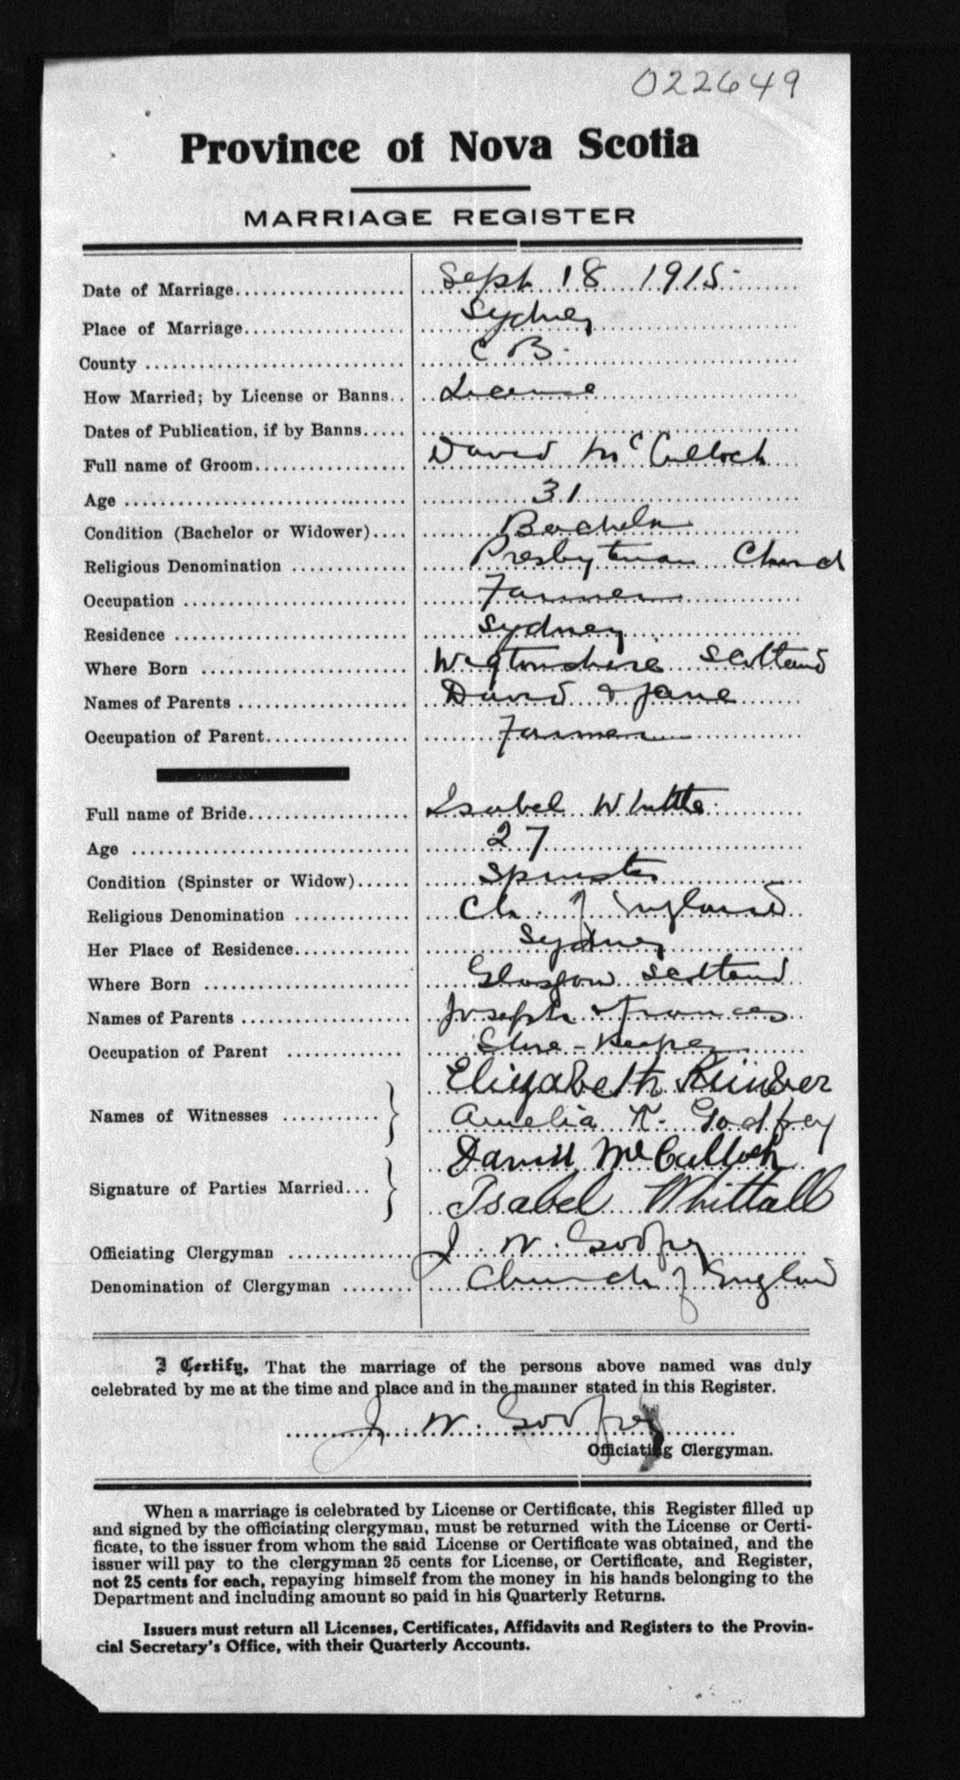 022649
Province of Nova Scotia
MARRIAGE REGISTER
Date of Marriage Sept 18 1915
Place of Marriage Sydney
County C B.
How Married; by License or Banns License
Dates of Publication, if by Banns
Full name of Groom David McCulloch
Age 31
Condition (Bachelor or Widower) Bachelor
Religious Denomination Presbyterian Church
Occupation Farmer
Residence Sydney
Where Born Wigtonshire Scotland
Names of Parents David & Jane
Occupation of Parent Farmer
Full name of Bride Isabel Whittle
Age 27
Condition (Spinster or Widow) Spinster
Religious Denomination Ch. of England
Her Place of Residence Sydney
Where Born Glasgow Scotland
Names of Parents Joseph & Frances
Occupation of Parent Store-Keeper
Elizabeth
Names of Witnesses Amelia K. Godfrey
David McCulloch
Signature of Parties Married Isabel Whittall
Officiating Clergyman J. W. Godfrey
Denomination of Clergyman Church of England
I Certify, That the marriage of the persons above named was duly
celebrated by me at the time and place and in the manner stated in this Register.
J. W. Godfrey
Officiating Clergyman.
When a marriage is celebrated by License or Certificate, this Register filled up
and signed by the officiating clergyman, must be returned with the License or Certi-
ficate, to the issuer from whom the said License or Certificate was obtained, and the
issuer will pay to the clergyman 25 cents for License, or Certificate, and Register,
not 25 cents for each, repaying himself from the money in his hands belonging to the
Department and including amount so paid in his Quarterly Returns.
Issuers must return all Licenses, Certificates, Affidavits and Registers to the Provin-
cial Secretary's Office, with their Quarterly Accounts.